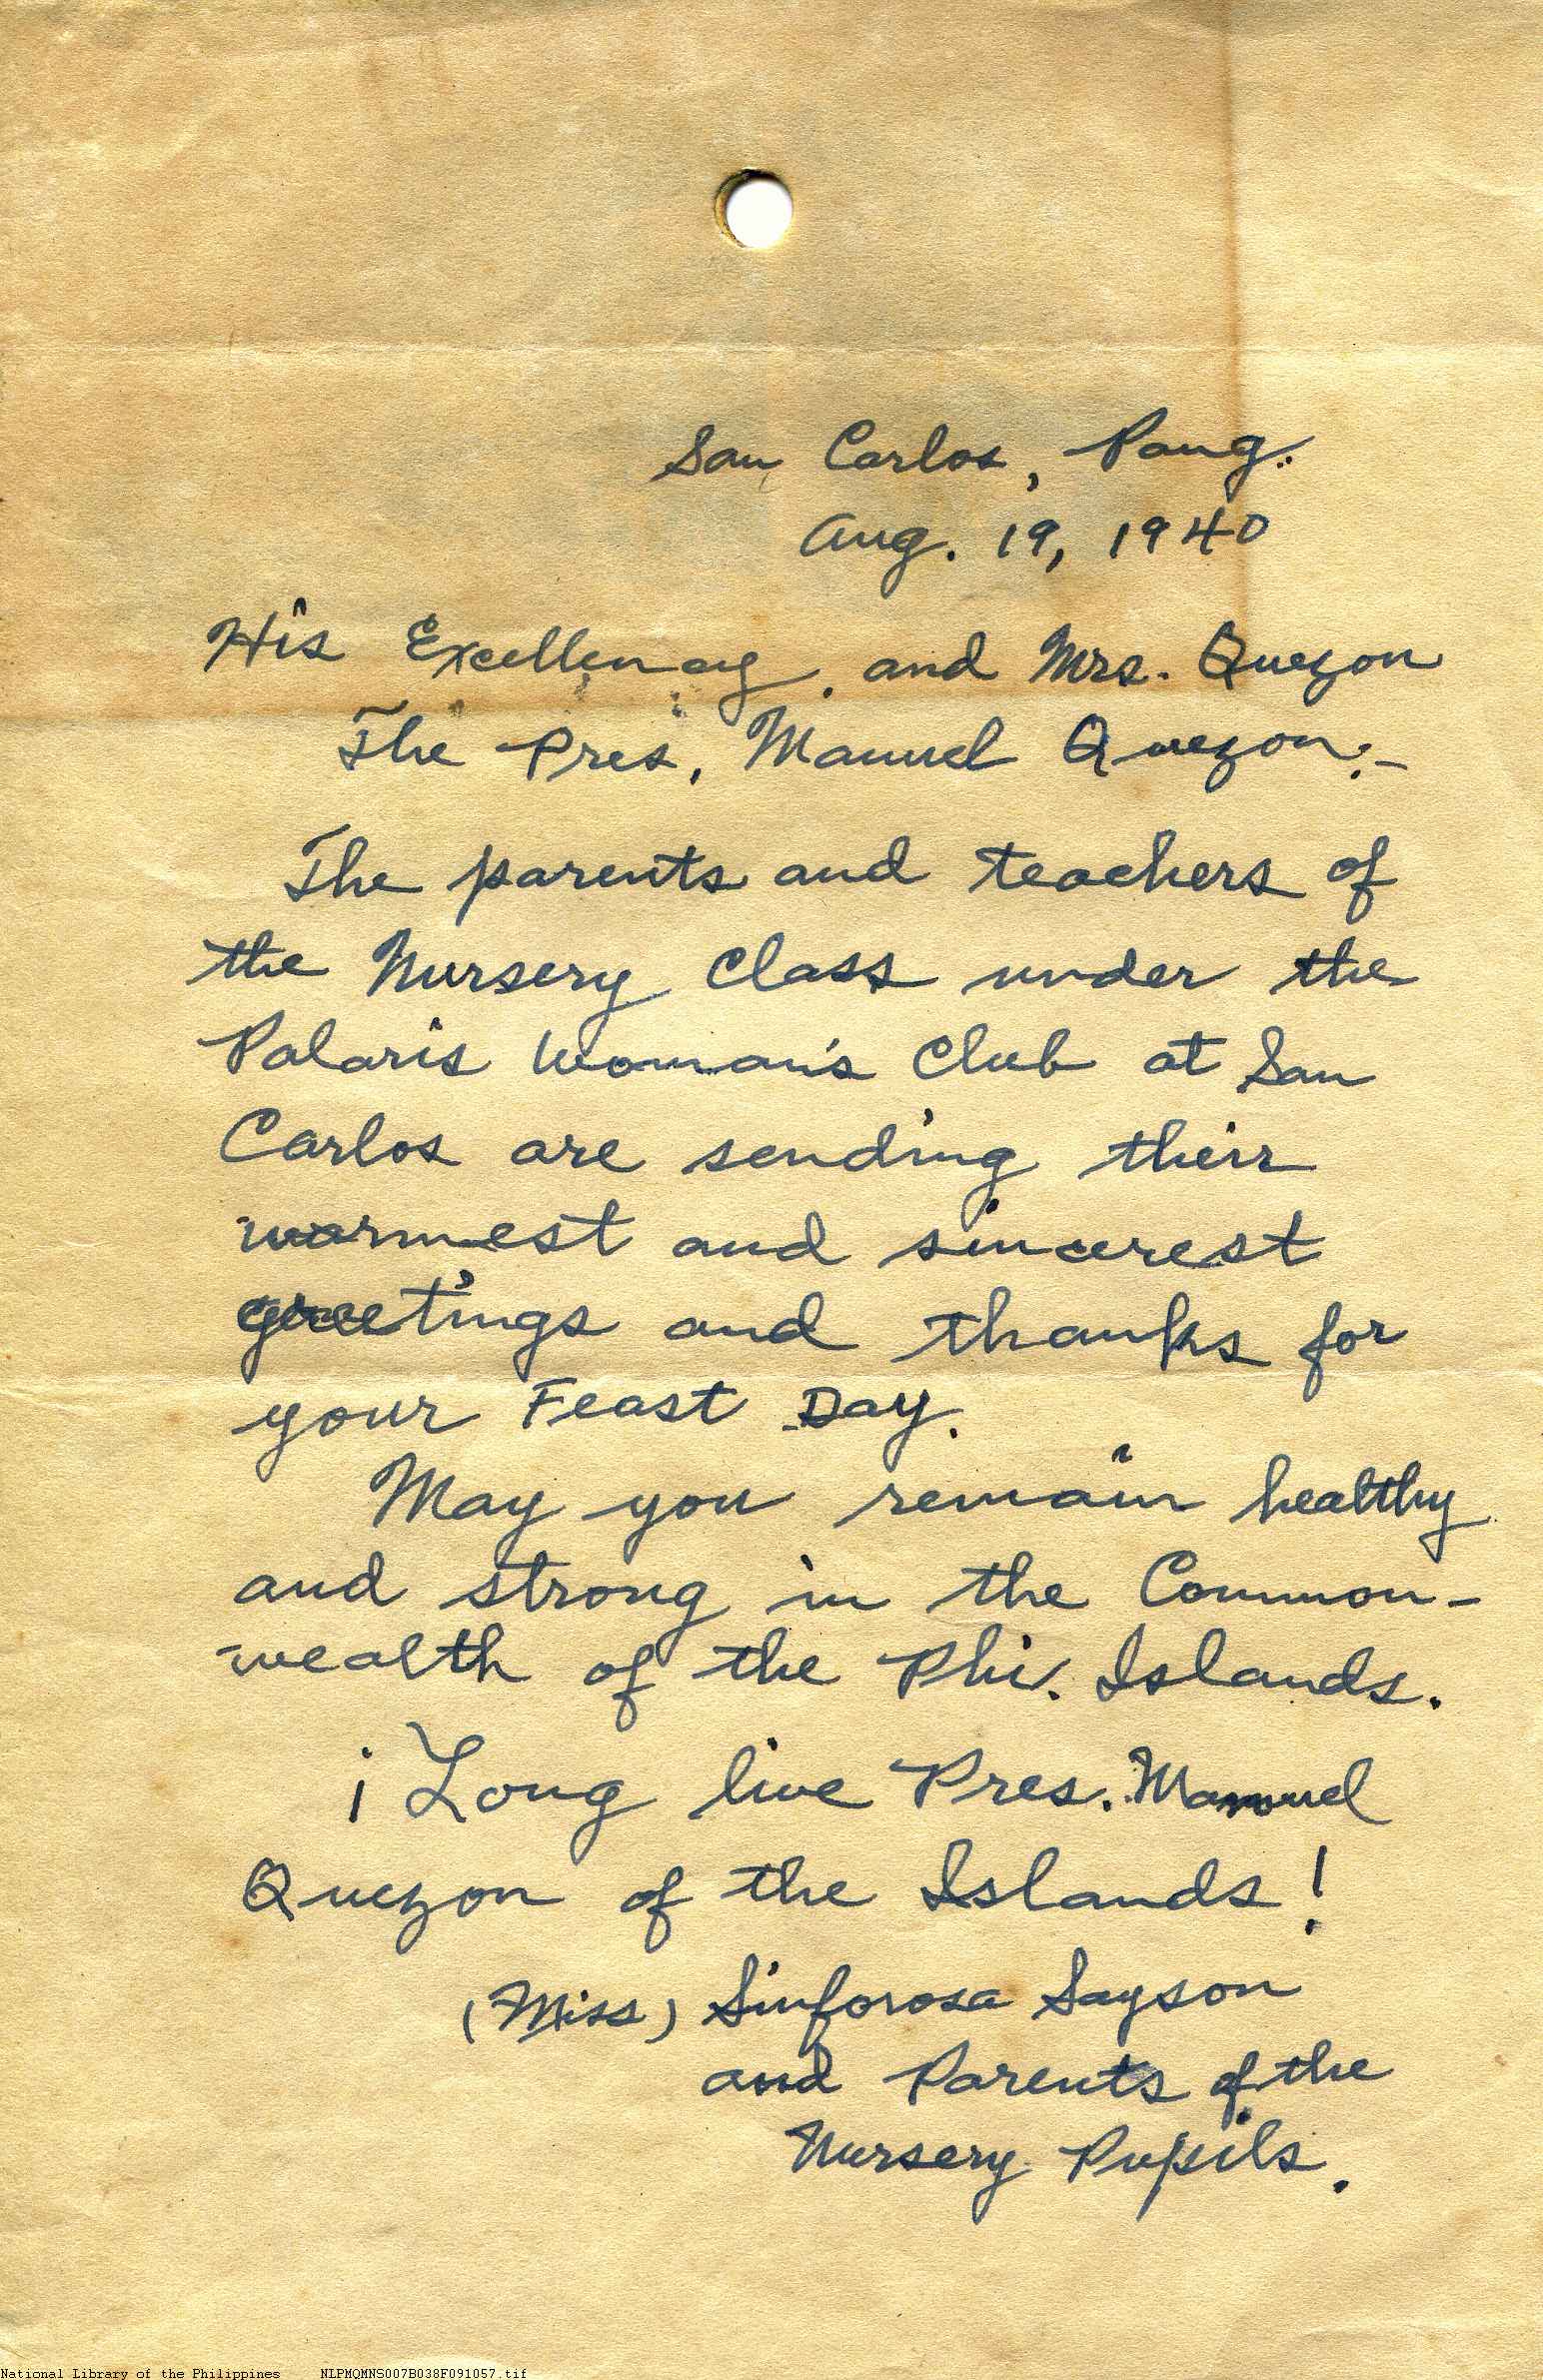 San Carlos, Pang.
Aug. 19, 1940
His Excellency, and Mrs. Quezon
The Pres. Manuel Quezon:-
The parents and teachers of
the Nursery Class under the
Palaris Woman's Club at San
Carlos are sending their
warmest and sincerest
greetings and thanks for
your Feast Day.
May you remain healthy
and strong in the Common-
wealth of the Phi. Islands.
¡Long live Pres. Manuel
Quezon of the Islands!
(Miss) Sinforosa Sayson
and Parents of the
Nursery Pupils.
National Library of the Philippines NLPMQMNS007B038F091057.tif